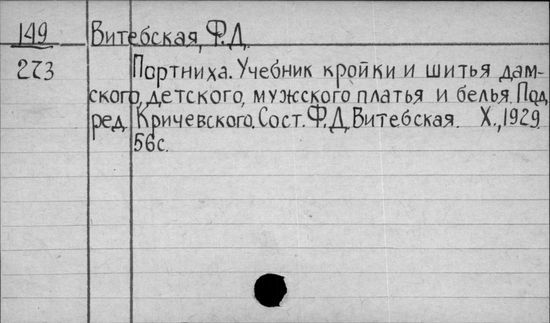 149 Витебская, Ф.Д.
273 Портниха. Учебник кройки и шитья дам-
ского, детского, мужского платья и белья. Под
ред. Кричевского. Сост. Ф.Д. Витебская. Х., 1929
56с.